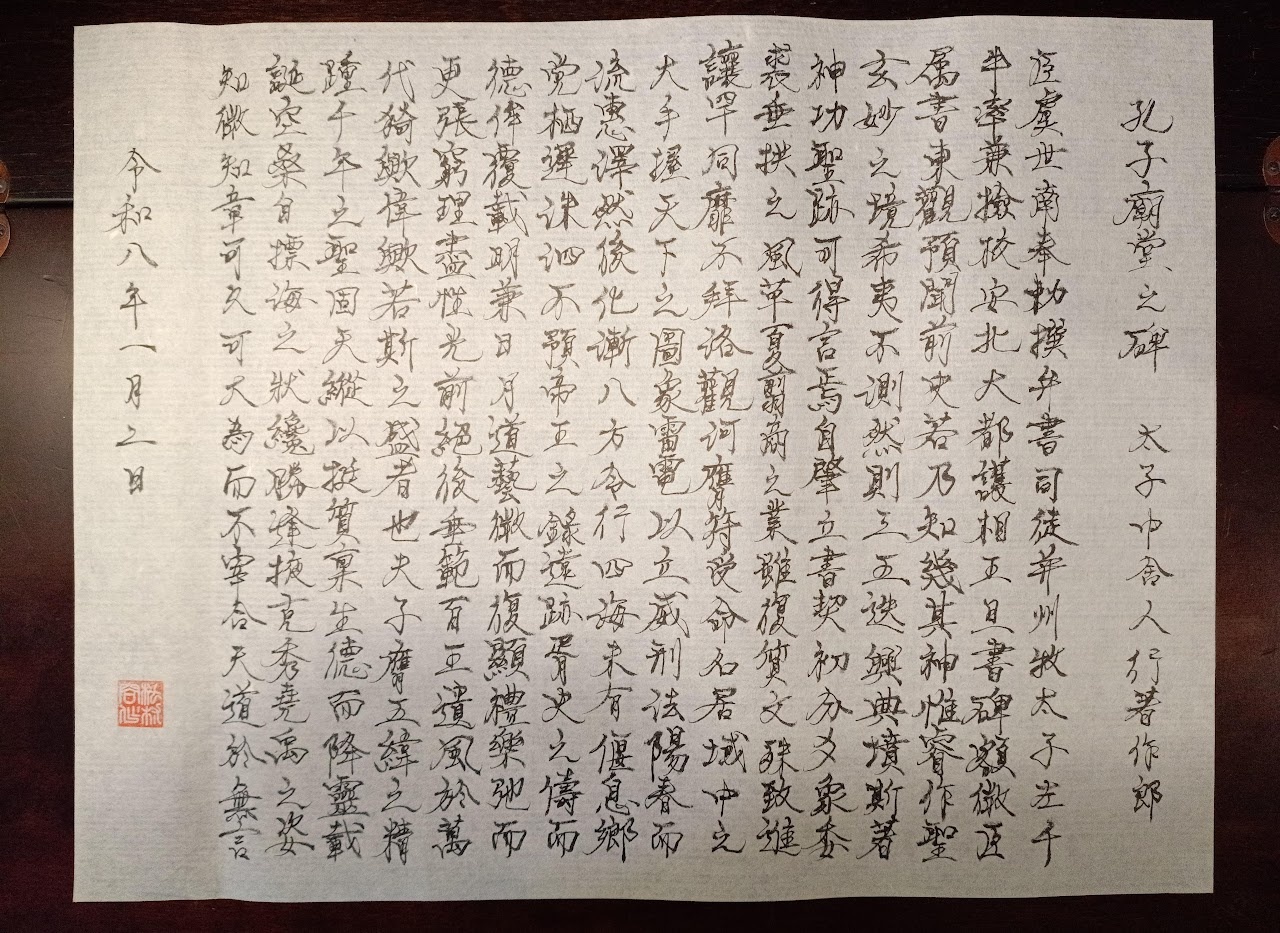 孔子廟堂之碑　太子中舍人行著作郎
臣虞世南奉勅撰并書司徒并州牧太子左千
牛率兼撿挍安北大都護相王旦書碑額微臣
属書東觀預聞前史若乃知幾其神惟睿作聖
玄妙之境希夷不測然則三五迭興典墳斯著
神功聖跡可得言焉自肇立書契初分爻象委
裘垂拱之風革夏翦商之業雖復質文殊致進
讓罕同靡不拜洛觀河膺符受命名居域中之
大手握天下之圖象雷電以立威刑法陽春而
流惠澤然後化漸八方令行四海未有偃息鄉
党栖遲洙泗不預帝王之錄遠跡胥史之儔而
德侔覆載明兼日月道藝微而復顯禮樂弛而
更張窮理盡性光前絕後垂範百王遺風於萬
代猗歟偉歟若斯之盛者也夫子膺五緯之精
踵千年之聖固天縱以挺質禀生德而降靈載
誕空桑自摽海之狀纔勝逢掖克秀堯禹之姿
知微知章可久可大為而不宰合天道於無言
令和八年一月二日